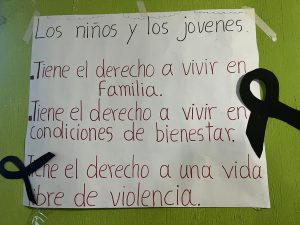 Los niños y los jovenes.
.Tiene el derecho a vivir en
familia.
.Tiene el derecho a vivir en
condiciones de bienestar.
Tiene el derecho a una vida
libre de violencia.